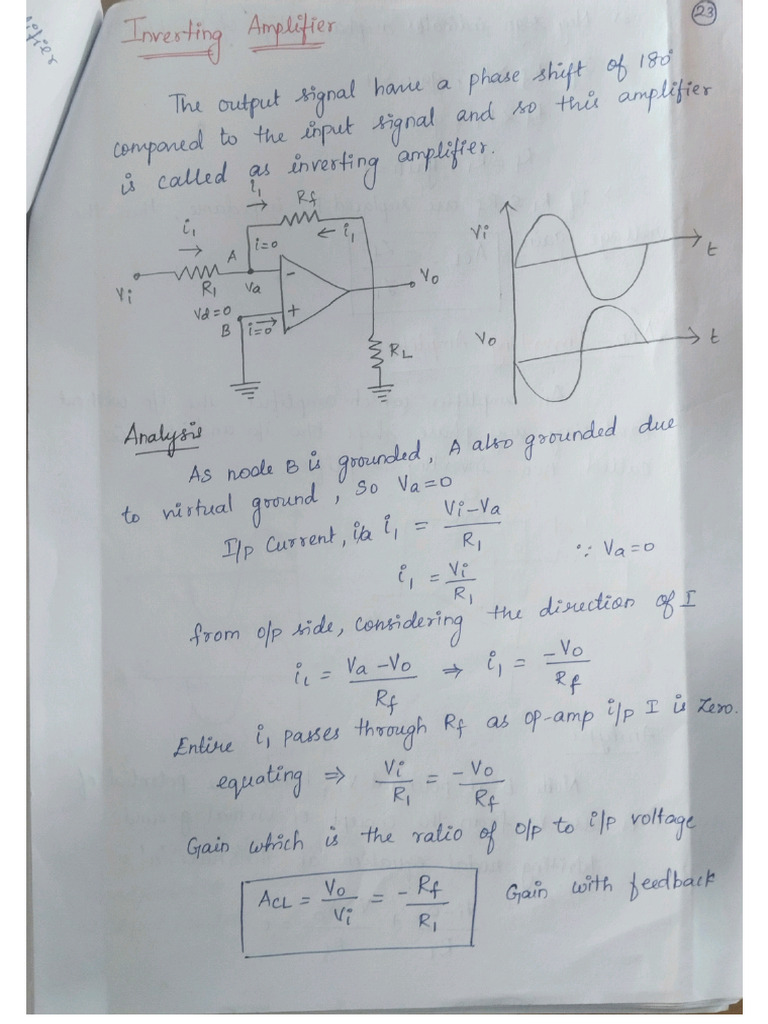 23
Inverting Amplifier
The output signal have a phase shift of 180°
compared to the input signal and so this amplifier
is called as inverting amplifier.
i₁
Rf
i₁
← i₁
A
i=0
Vi
R₁
Va
-
Vo
Vd=0
B
i=0
+
RL
Vi
t
Vo
t
Analysis
As node B is grounded, A also grounded due
to virtual ground, so Va=0
I/p Current, i₁ = Vi-Va / R₁
i₁ = Vi / R₁ ∵ Va=0
from o/p side, considering the direction of I
i₁ = Va - Vo / Rf ⇒ i₁ = -Vo / Rf
Entire i₁ passes through Rf as op-amp i/p I is zero.
equating ⇒ Vi / R₁ = -Vo / Rf
Gain which is the ratio of o/p to i/p voltage
ACL = Vo / Vi = - Rf / R₁ Gain with feedback